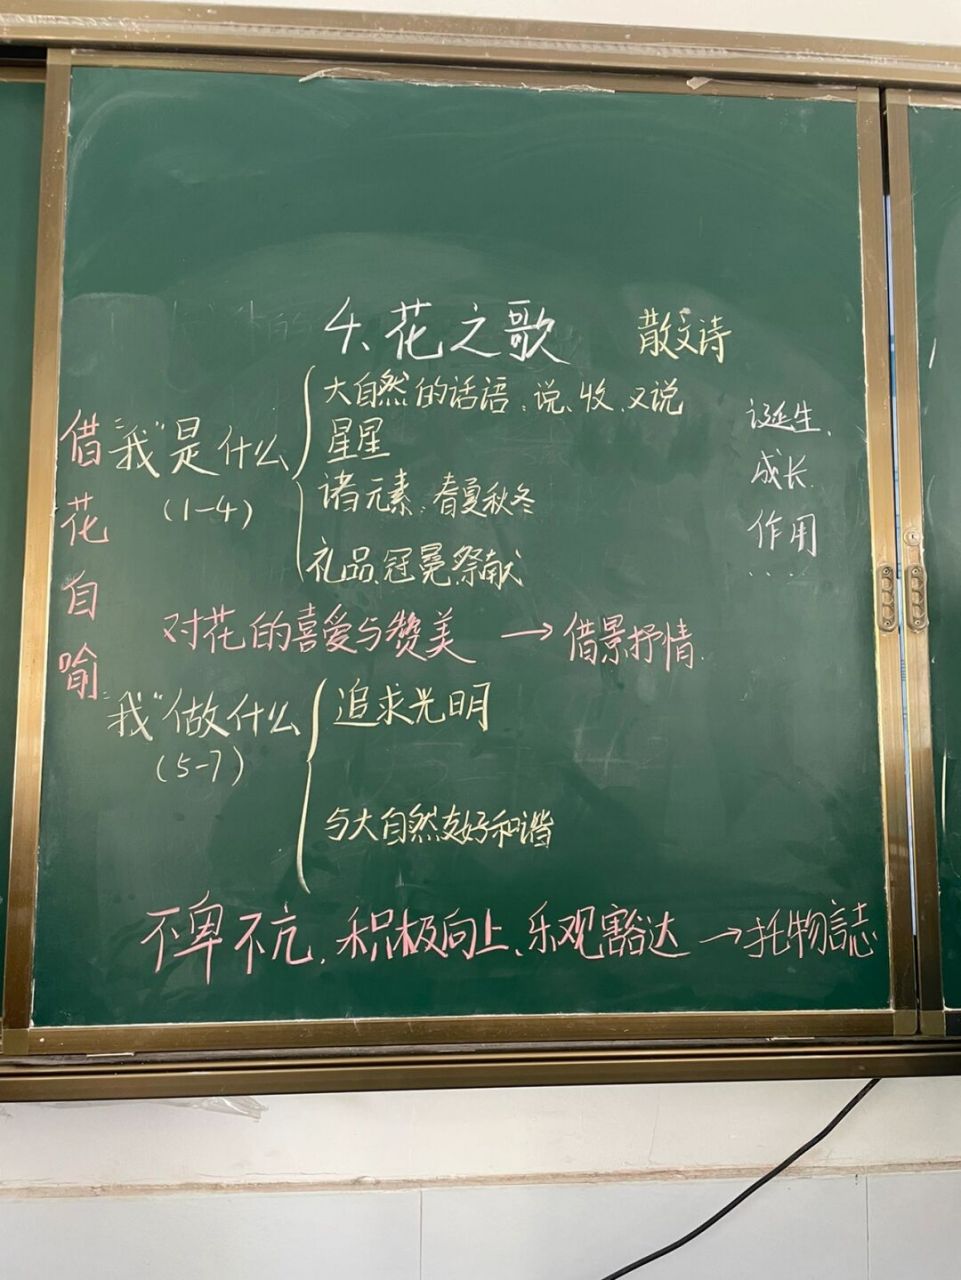 4、花之歌 散文诗
借花自喻
"我"是什么
(1-4)
大自然的话语:说、收、又说
星星
诸元素:春夏秋冬
礼品、冠冕祭献
诞生、
成长
作用
……
对花的喜爱与赞美 → 借景抒情
"我"做什么
(5-7)
追求光明
与大自然友好和谐
不卑不亢、积极向上、乐观豁达 → 托物言志